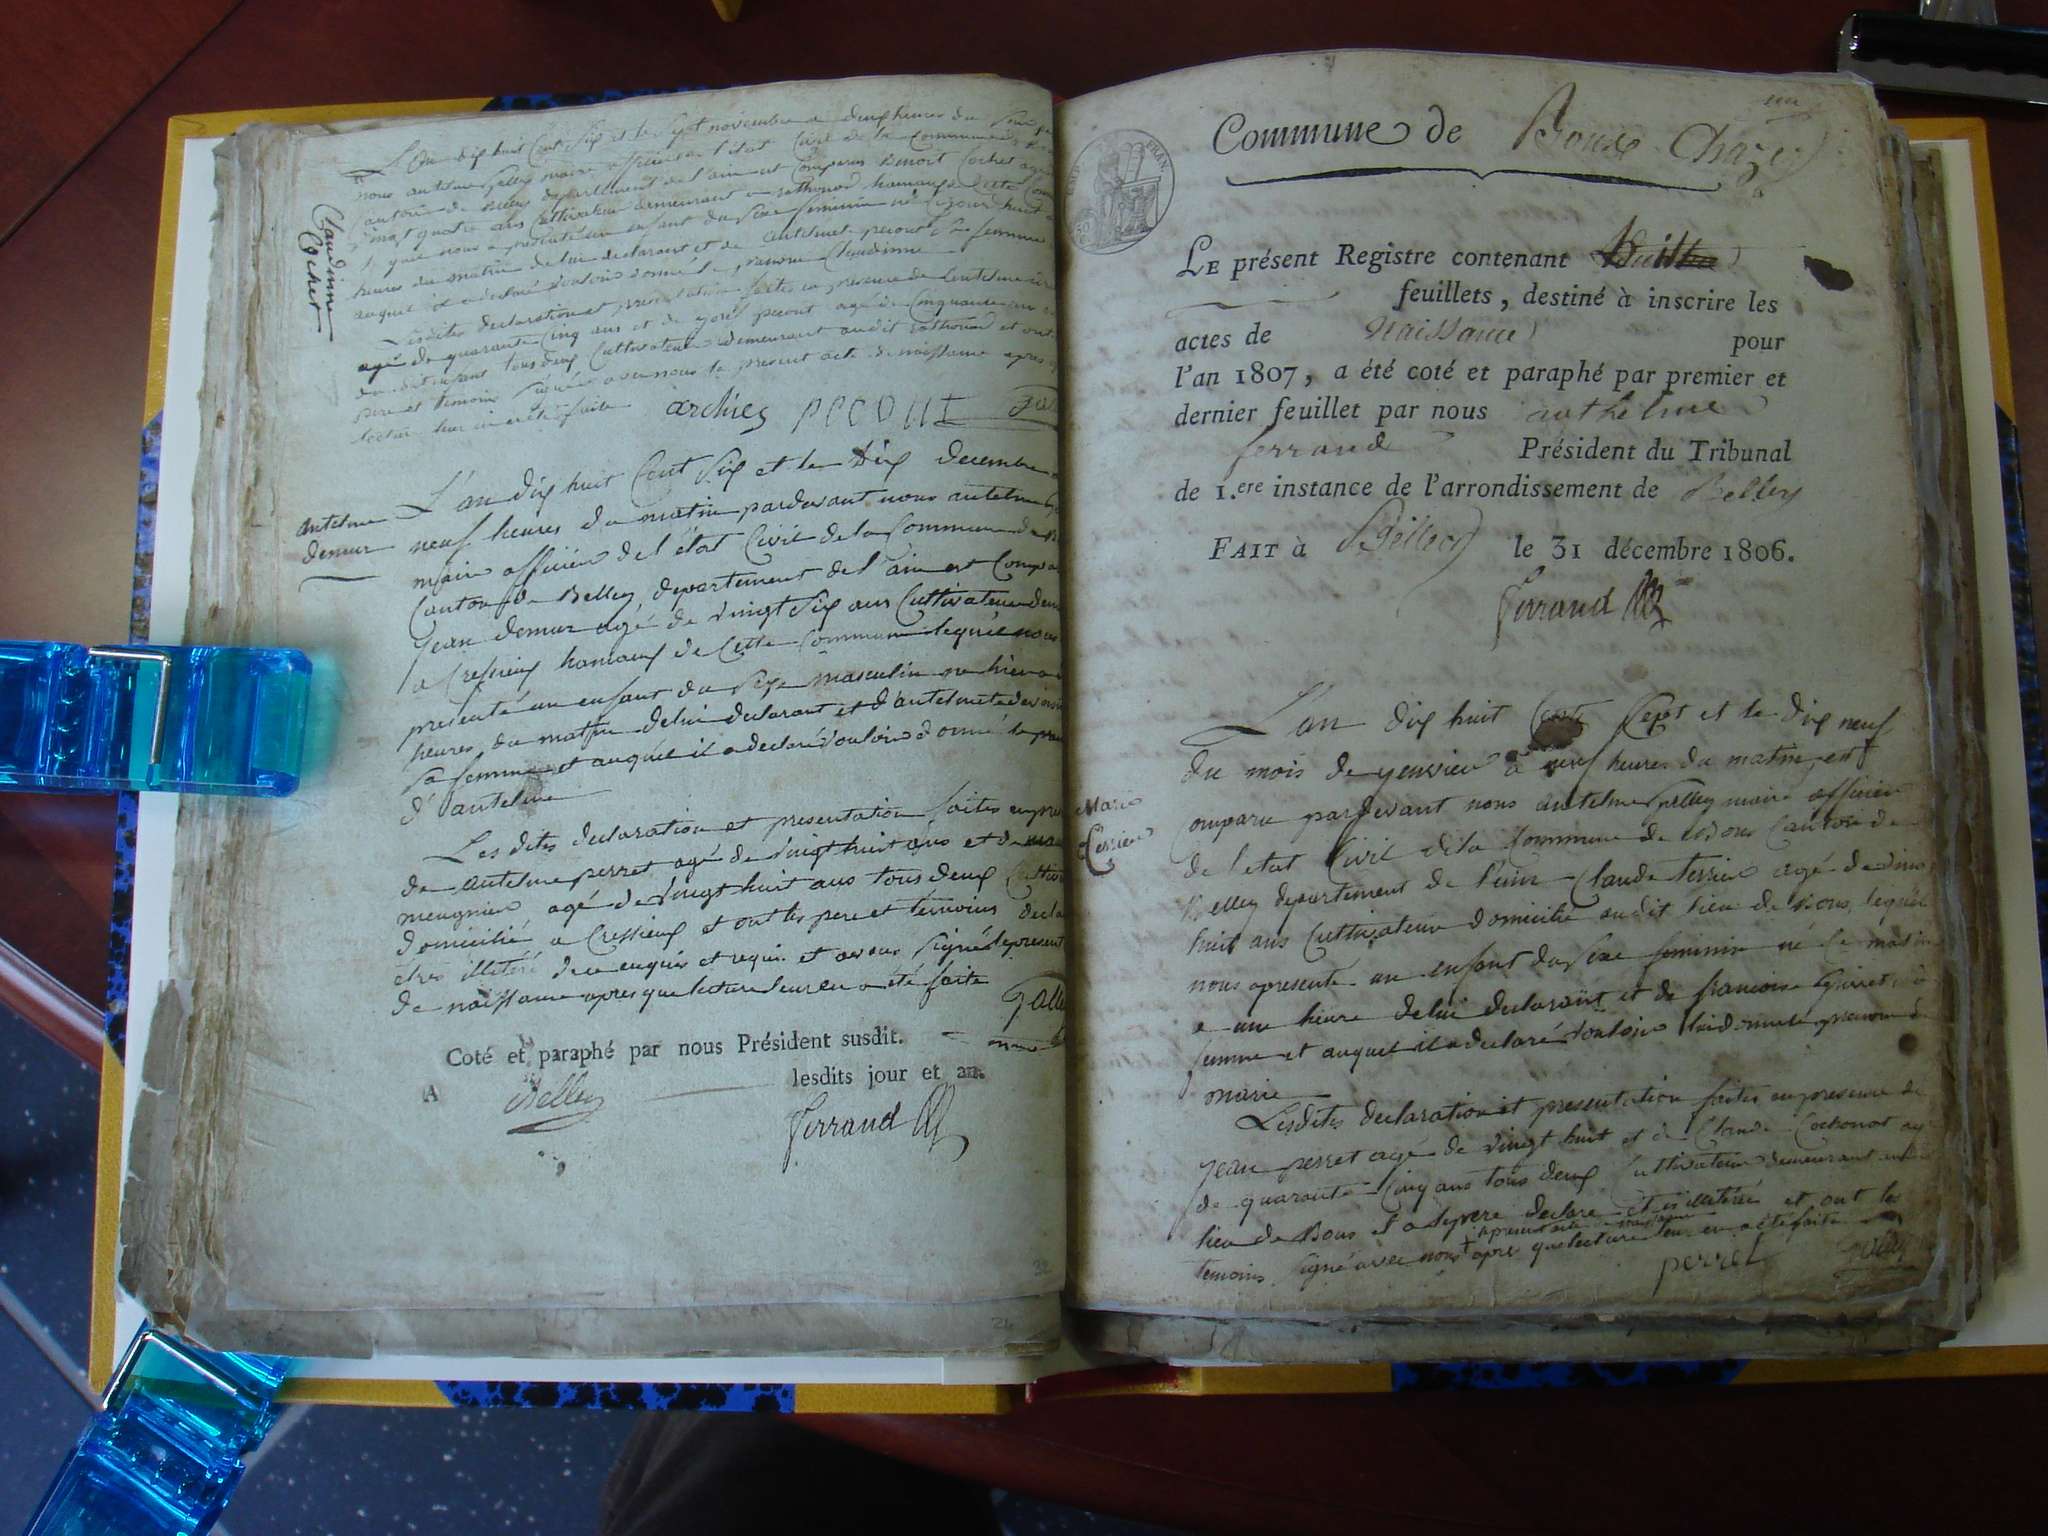 L'an dix huit Cent Six et le Sept novembre a deux heures du Soir
nous antelme maire officier de l'état Civil de la Commune
canton de Belley departement de l'ain est Comparus Benoit Cochet agé
vingt quatre ans Cultivateur demeurant a hamaux de Cette
le quel nous a présenté un enfant du Sexe feminin né ce jour huit
heures du matin de lui declarant et de antelmete pecout Sa femme
auquel il a declaré vouloir donné le prenom Claudinne
Claudinne
Cochet
Lesdites declaration et présentation faites en presence de
agé de quarante Cinq ans et de pecout agé de Cinquante
tous deux Cultivateurs demeurant audit et ont
pere et temoins Signé avec nous le present acte de naissance apres
lecture leur en été faite
archies PECOUT
L'an dix huit Cent Six et le Dix decembre
antelme
demur
neuf heures du matin pardevant nous antelme
maire officier de l'état Civil de la Commune de
Canton de Belley departement de l'ain est Compa
Jean demur agé de vingt Six ans Cultivateur dem
a Cressieux hamaux de Cette Commune lequel nous
presenté un enfant du Sexe masculin né hier
heures du matin de lui declarant et d'antelmete
Sa femme et auquel il a declaré vouloir donné le pre
d'antelme
Les dites declaration et presentation faites en pre
de antelme perret agé de vingt huit ans et de
meugnier agé de vingt huit ans tous deux Cultiv
domicilié a Cressieux et ont les pere et temoins decla
etres illitéré de ce enquis et requis et avons Signé le present
de naissance apres que lecture leur en a été faite
Coté et paraphé par nous Président susdit.
A Belley lesdits jour et an.
Ferrand
32
26
un
Commune de Bons Chazey
EMP FRAN
LE présent Registre contenant huit
feuillets, destiné à inscrire les
actes de Naissance pour
l'an 1807, a été coté et paraphé par premier et
dernier feuillet par nous anthelme
ferrand Président du Tribunal
de 1.ere instance de l'arrondissement de Belley
FAIT à Belley le 31 décembre 1806.
Ferrand
L'an dix huit Cents Sept et le dix neuf
du mois de Jenvier a neuf heures du matin, est
Marie
Terrier
omparu pardevant nous antelme maire officier
de l'etat Civil de la Commune de Bons Canton de
Belley departement de l'ain Claude Terrier agé de vint
huit ans Cultivateur domicilié audit lieu de Bons, lequel
nous a presenté un enfant du Sexe feminin né ce matin
a une heure de lui declarant et de francoise
femme et auquel il a declaré vouloir lui donné le prenom de
marie
Lesdites declaration et presentation faites en presence de
Jean perret agé de vingt huit et de Claude Cochonat ag
de quarante Cinq ans tous deux Cultivateur demeurant
lieu de Bons et a le pere declare etres illitéré et ont les
le present acte de naissance
temoins Signé avec nous + apres que lecture leur en a été faite
perret